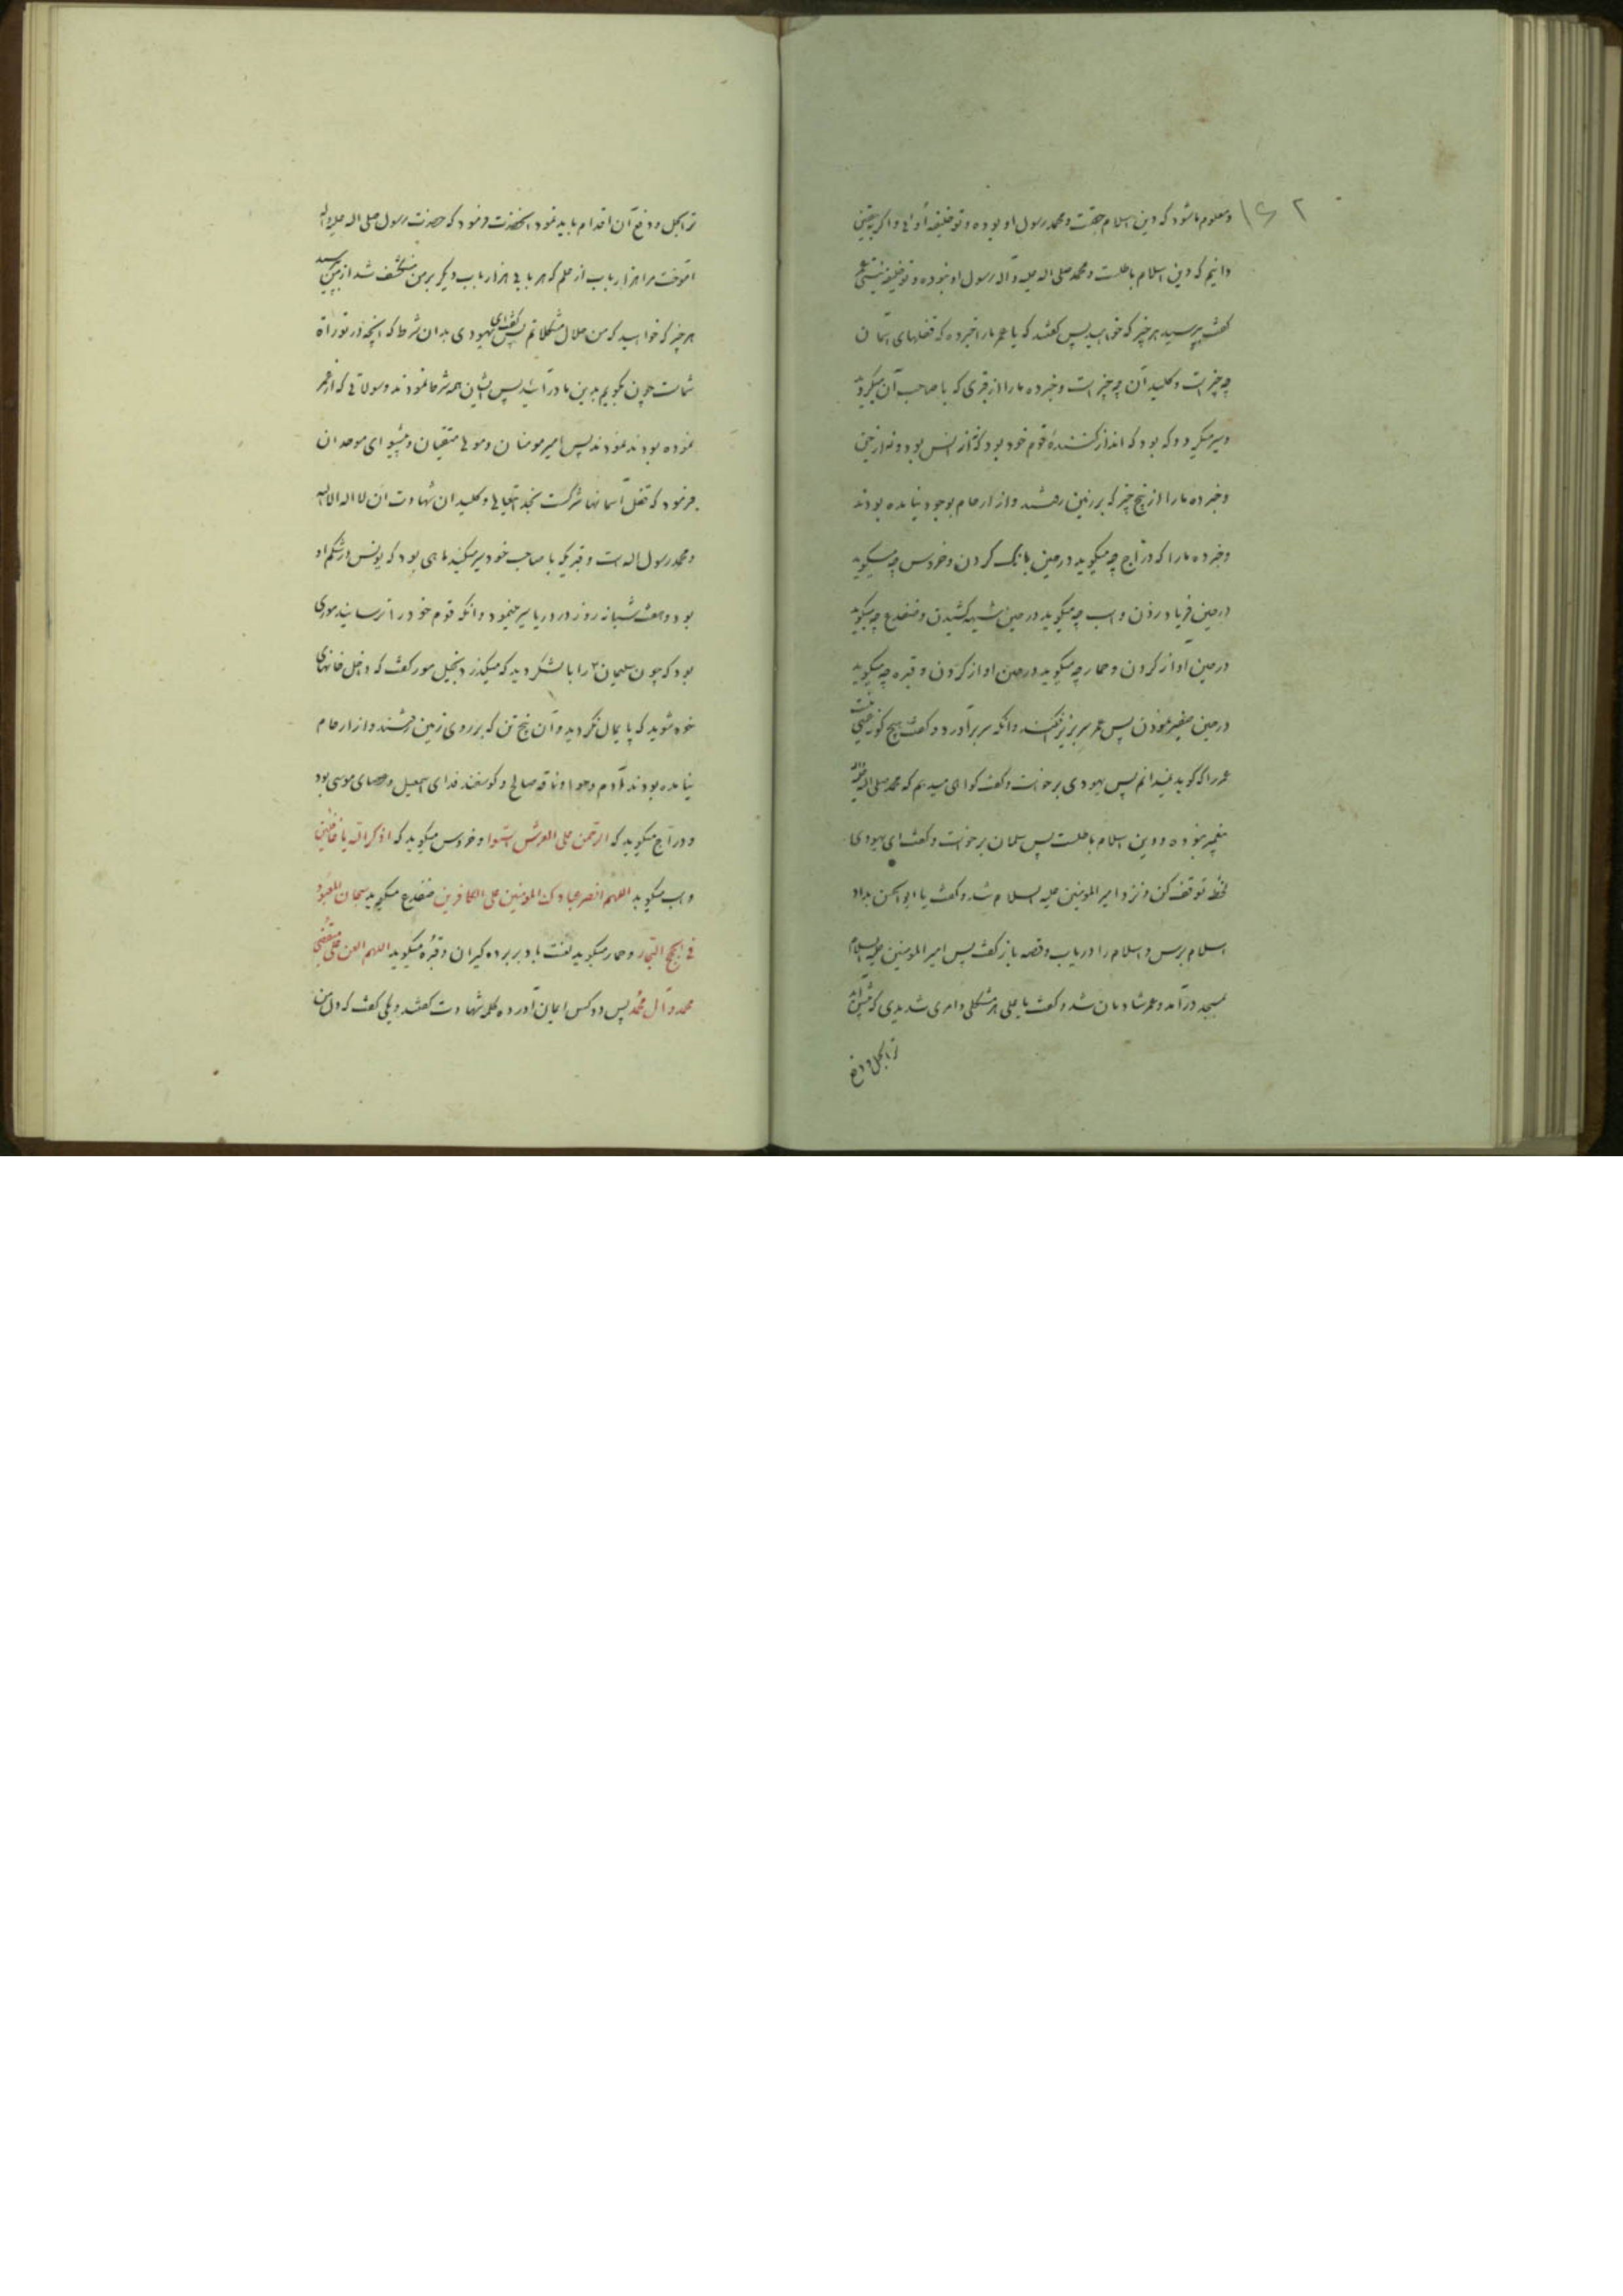 ۱۶۲
و معلوم ما شود که دین اسلام حقست و محمد رسول او بوده و تو خلیفه او و اگر
دانیم که دین اسلام باطلست و محمد صلی اله علیه و آله رسول او نبوده و تو خلیفه نیستی
گفت بپرسید هر چیز که خواهید پس گفتند که یا عمر ما را خبر ده که قفلهای آسمان
چه چیز است و کلید آن چه چیز است و خبر ده ما را از قبری که با صاحب آن میگردید
و سیر میکرد و که بود که انذار کننده قوم خود بود که نه از انس بود و نه از جن
و خبر ده ما را از پنج چیز که بر زمین رفتند و از ارحام بوجود نیامده بودند
و خبر ده ما را که دراج چه میگوید در حین بانگ کردن و خروس چه میگوید
در حین فریاد زدن و اسب چه میگوید در حین شیهه کشیدن و ضفدع چه میگوید
در حین آواز کردن و حمار چه میگوید در حین اواز کردن و قبره چه میگوید
در حین صفیر نمودن پس عمر سر بزیر افکند و انگه سر برآورد و گفت هیچ
عمر را که گوید نمیدانم پس یهودی برخواست و گفت گواهی میدهم که محمد صلی اله
پیغمبر نبوده و دین اسلام باطلست پس سلمان برخواست و گفت ای یهودی
لحظه توقف کن و نزد امیر المومنین علیه السلام شد و گفت یا ابو الحسن بداد
اسلام برس و اسلام را دریاب و قصه باز گفت پس امیر المومنین علیه السلام
بمسجد درآمد و عمر شادمان شد و گفت یا علی هر مشکلی و امری شدیدی که
ترا بجل و دفع
ترا بجل و دفع آن اقدام باید نمود آنحضرت فرمود که حضرت رسول صلی اله علیه و اله
آموخت مرا هزار باب از علم که هر بابی هزار باب دیگر بر من منکشف شد از من بپرسید
هر چیز که خواهید که من حلال مشکلاتم پس گفت ای یهودی بدان شرط که آنچه در توراة
شماست چون بگویم بدین ما درآئید پس ایشان همه شرطها نمودند و سولاتی که از عمر
نموده بودند نمودند پس امیر مومنان و مولا متقیان و پیشوای موحدان
فرمود که قفل آسمانها شرکست بخدایتعالی و کلید ان شهادت ان لا اله الا الله
و محمد رسول الله است و قبریکه با صاحب خود سیر میکند ماهی بود که یونس در شکم او
بود و هفت شبانه روز در دریا سیر مینمود و انکه قوم خود را ترسانید موری
بود که چون سلیمان را با لشکر دید که میگذرد بخیل مور گفت که داخل خانهای
خود شوید که پایمال نگردید و آن پنج تن که بر روی زمین رفتند و از ارحام
نیامده بودند آدم و حوا و ناقه صالح و گوسفند فدای اسمعیل و عصای موسی بود
و دراج میگوید که الرحمن علی العرش استوا و خروس میگوید که اذکرالله یا غافلین
و اسب میگوید اللهم انصر عبادک المومنین علی الکافرین ضفدع میگوید سبحان المعبود
فی لجج البحار و حمار میگوید لعنت باد بر برده گیران و قبره میگوید اللهم العن علی مبغضی
محمد و آل محمد پس دو کس ایمان آورده کلمه شهادت گفتند و یکی گفت که دل من